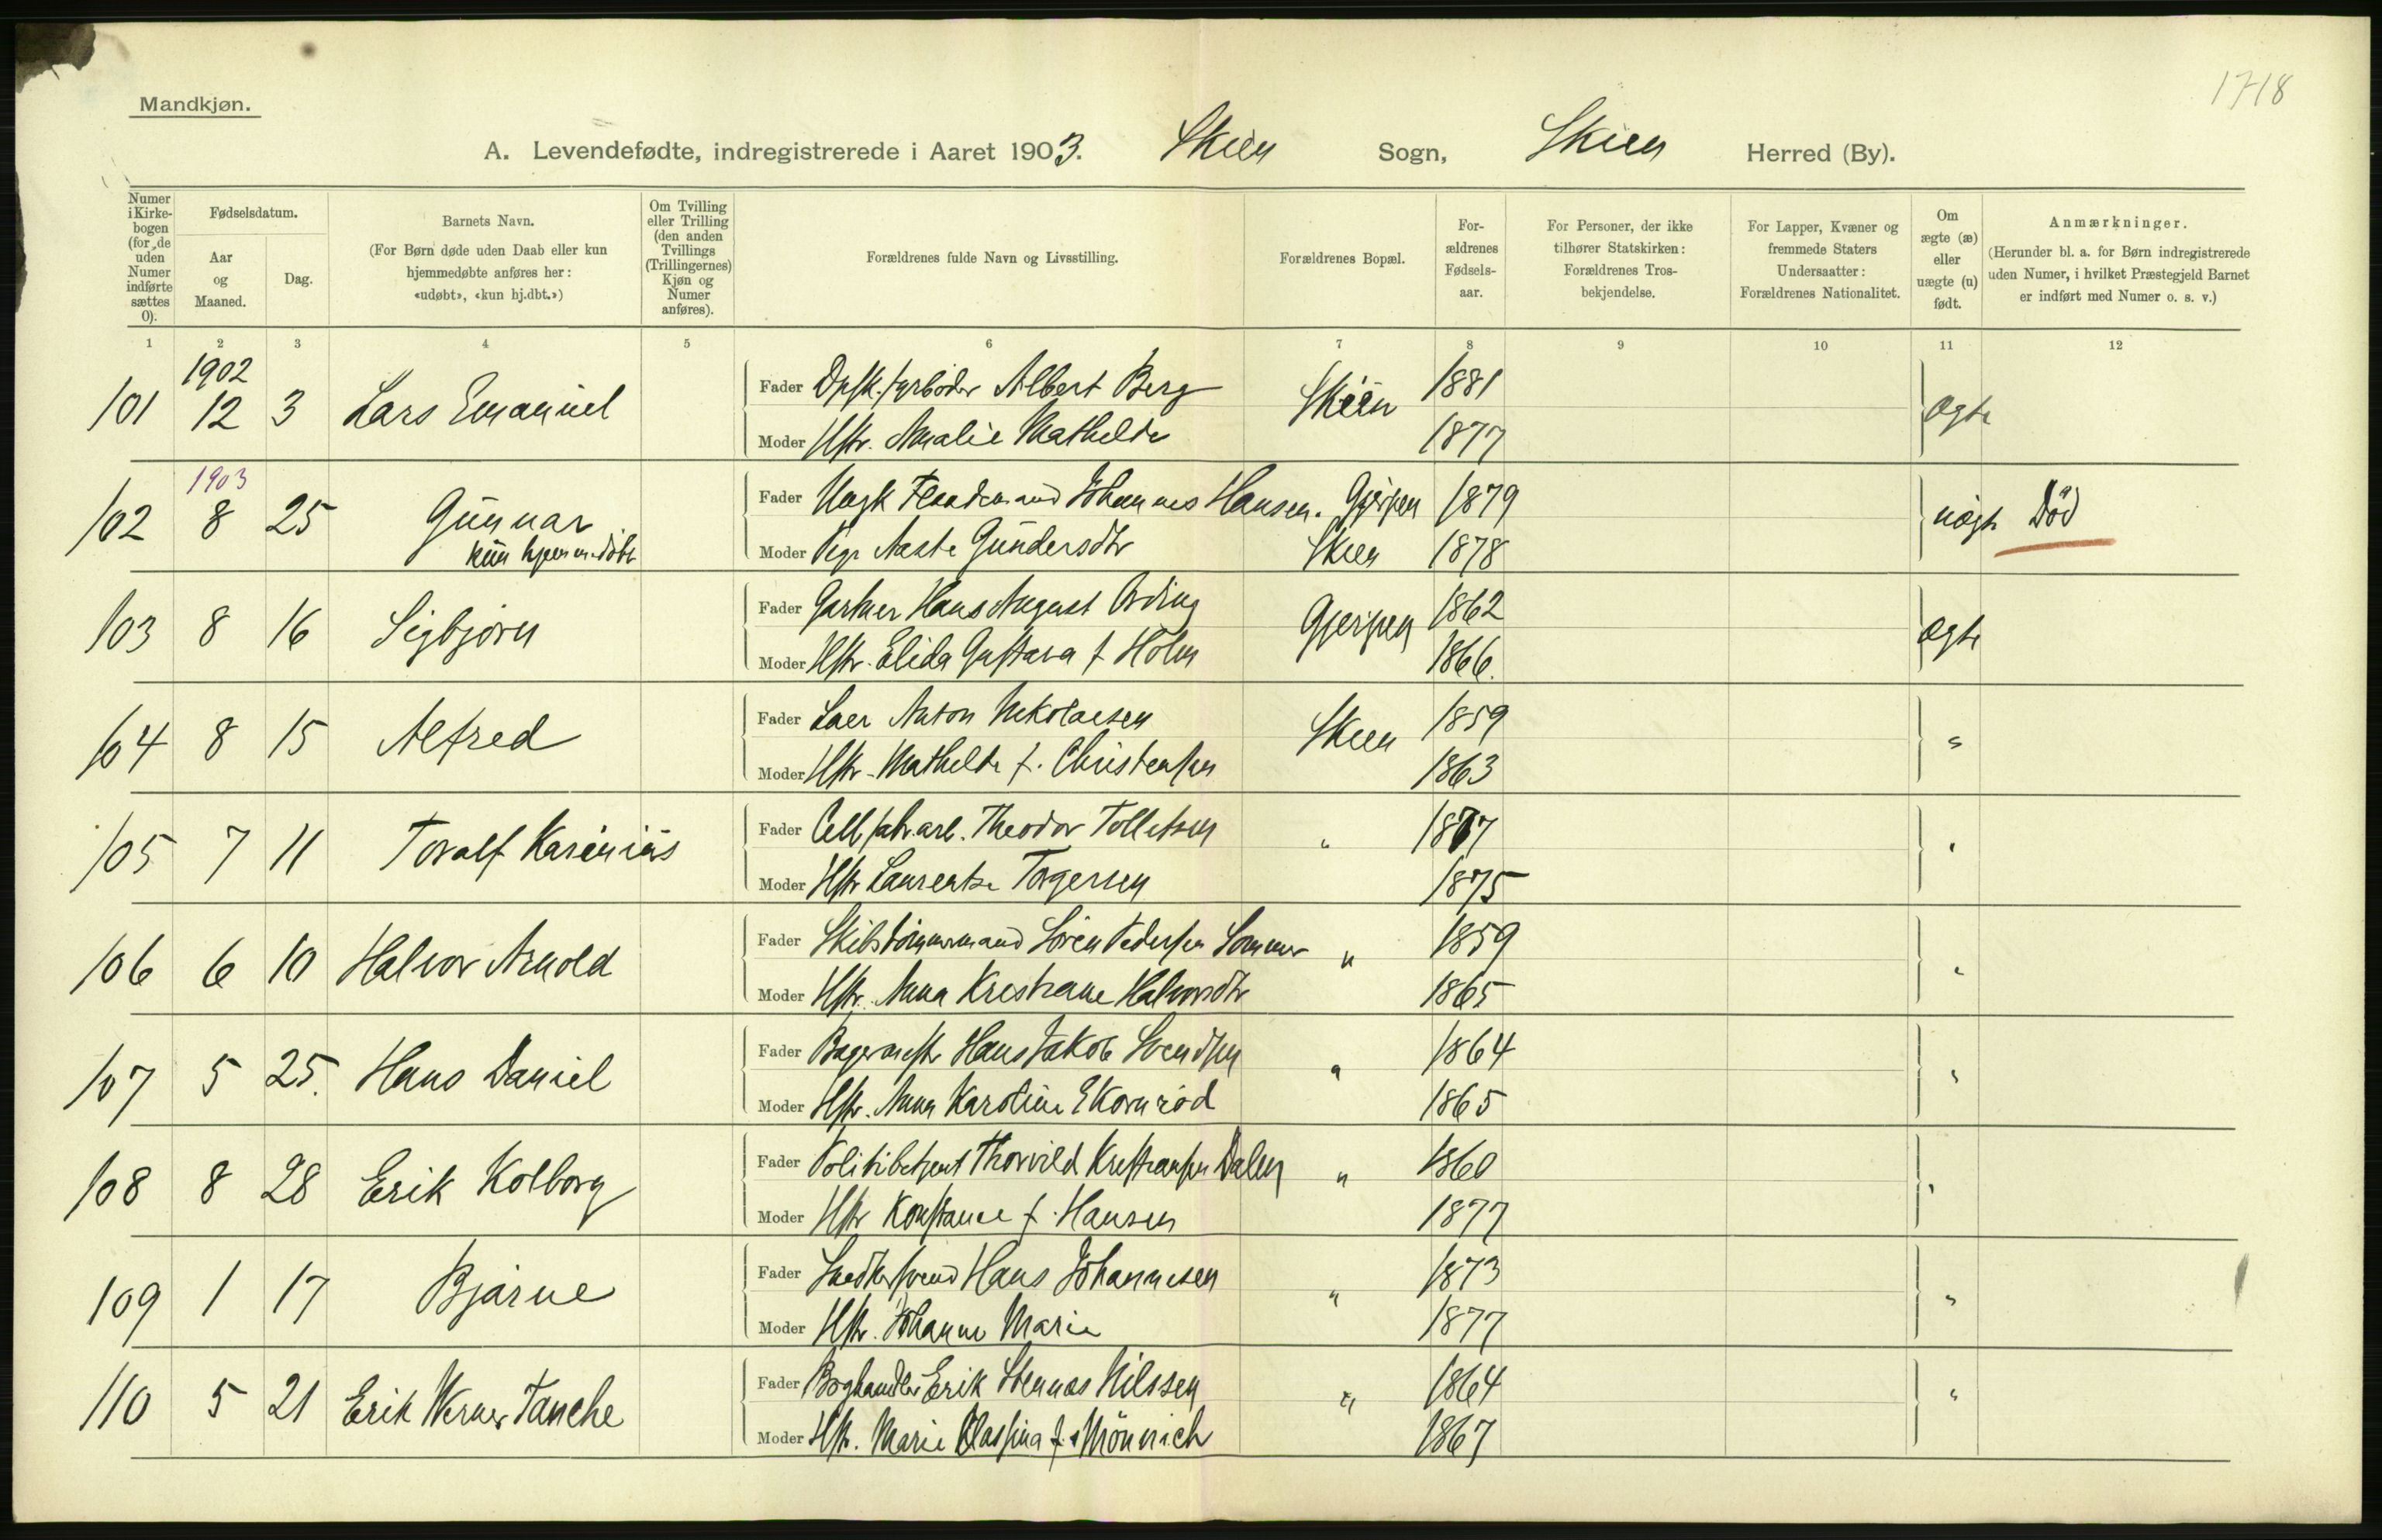 1718
Mandkjøn.
A. Levendefødte, indregistrerede i Aaret 1903. Skien Sogn, Skien Herred (By).
Numer i Kirkebogen (for de uden Numer indførte sættes 0).
Fødselsdatum.
Aar og Maaned.
Dag.
Barnets Navn.
(For Børn døde uden Daab eller kun hjemmedøbte anføres her: «udøbt», «kun hj.dbt.»)
Om Tvilling eller Trilling (den anden Tvillings (Trillingernes) Kjøn og Numer anføres).
Forældrenes fulde Navn og Livsstilling.
Forældrenes Bopæl.
Forældrenes Fødselsaar.
For Personer, der ikke tilhører Statskirken: Forældrenes Trosbekjendelse.
For Lapper, Kvæner og fremmede Staters Undersaatter: Forældrenes Nationalitet.
Om ægte (æ) eller uægte (u) født.
Anmærkninger.
(Herunder bl. a. for Børn indregistrerede uden Numer, i hvilket Præstegjeld Barnet er indført med Numer o. s. v.)
1 2 3 4 5 6 7 8 9 10 11 12
1902
101 12 3 Lars Emanuel Fader Dpsk.fyrbøder Albert Berg Skien 1881 Ægte
Moder Hstr. Amalie Mathilde 1877
1903
102 8 25 Gunnar Fader Ungk Johannes Hansen. Gjerpen 1879 uægte Død
kun hjemmedøbt Moder Pige Aaste Gundersdtr Skien 1878
103 8 16 Sigbjørn Fader Gartner Hans August Ording Gjerpen 1862 Ægte
Moder Hstr. Elida Gustava f Holm 1866.
104 8 15 Alfred Fader Anton Nikolaisen Skien 1859 "
Moder Hstr. Mathilde f. Christensen 1863
105 7 11 Toralf Karinius Fader Cell.fabr.arb. Theodor Tollefsen " 1877 "
Moder Hstr Laurentse Torgersen 1875
106 6 10 Halvor Arnold Fader Skibstømmermand Søren Pedersen Sommer " 1859 "
Moder Hstr. Anna Kristiane Halvorsdtr 1865
107 5 25. Hans Daniel Fader Bagermestr Hans Jakob Svendsen " 1864 "
Moder Hstr. Anna Karoline Ekornrød 1865
108 8 28 Erik Kolborg Fader Politibetjent Thorvild Kristiansen Dalen " 1860 "
Moder Hstr Konstance f. Hansen 1877
109 1 17 Bjarne Fader Snedkersvend Hans Johannesen " 1873 "
Moder Hstr. Johanne Marie 1877
110 5 21 Erik Werner Tanche Fader Boghandler Erik Stennæs Nilssen " 1864 "
Moder Hstr. Marie Klassina f. Mönnich 1867